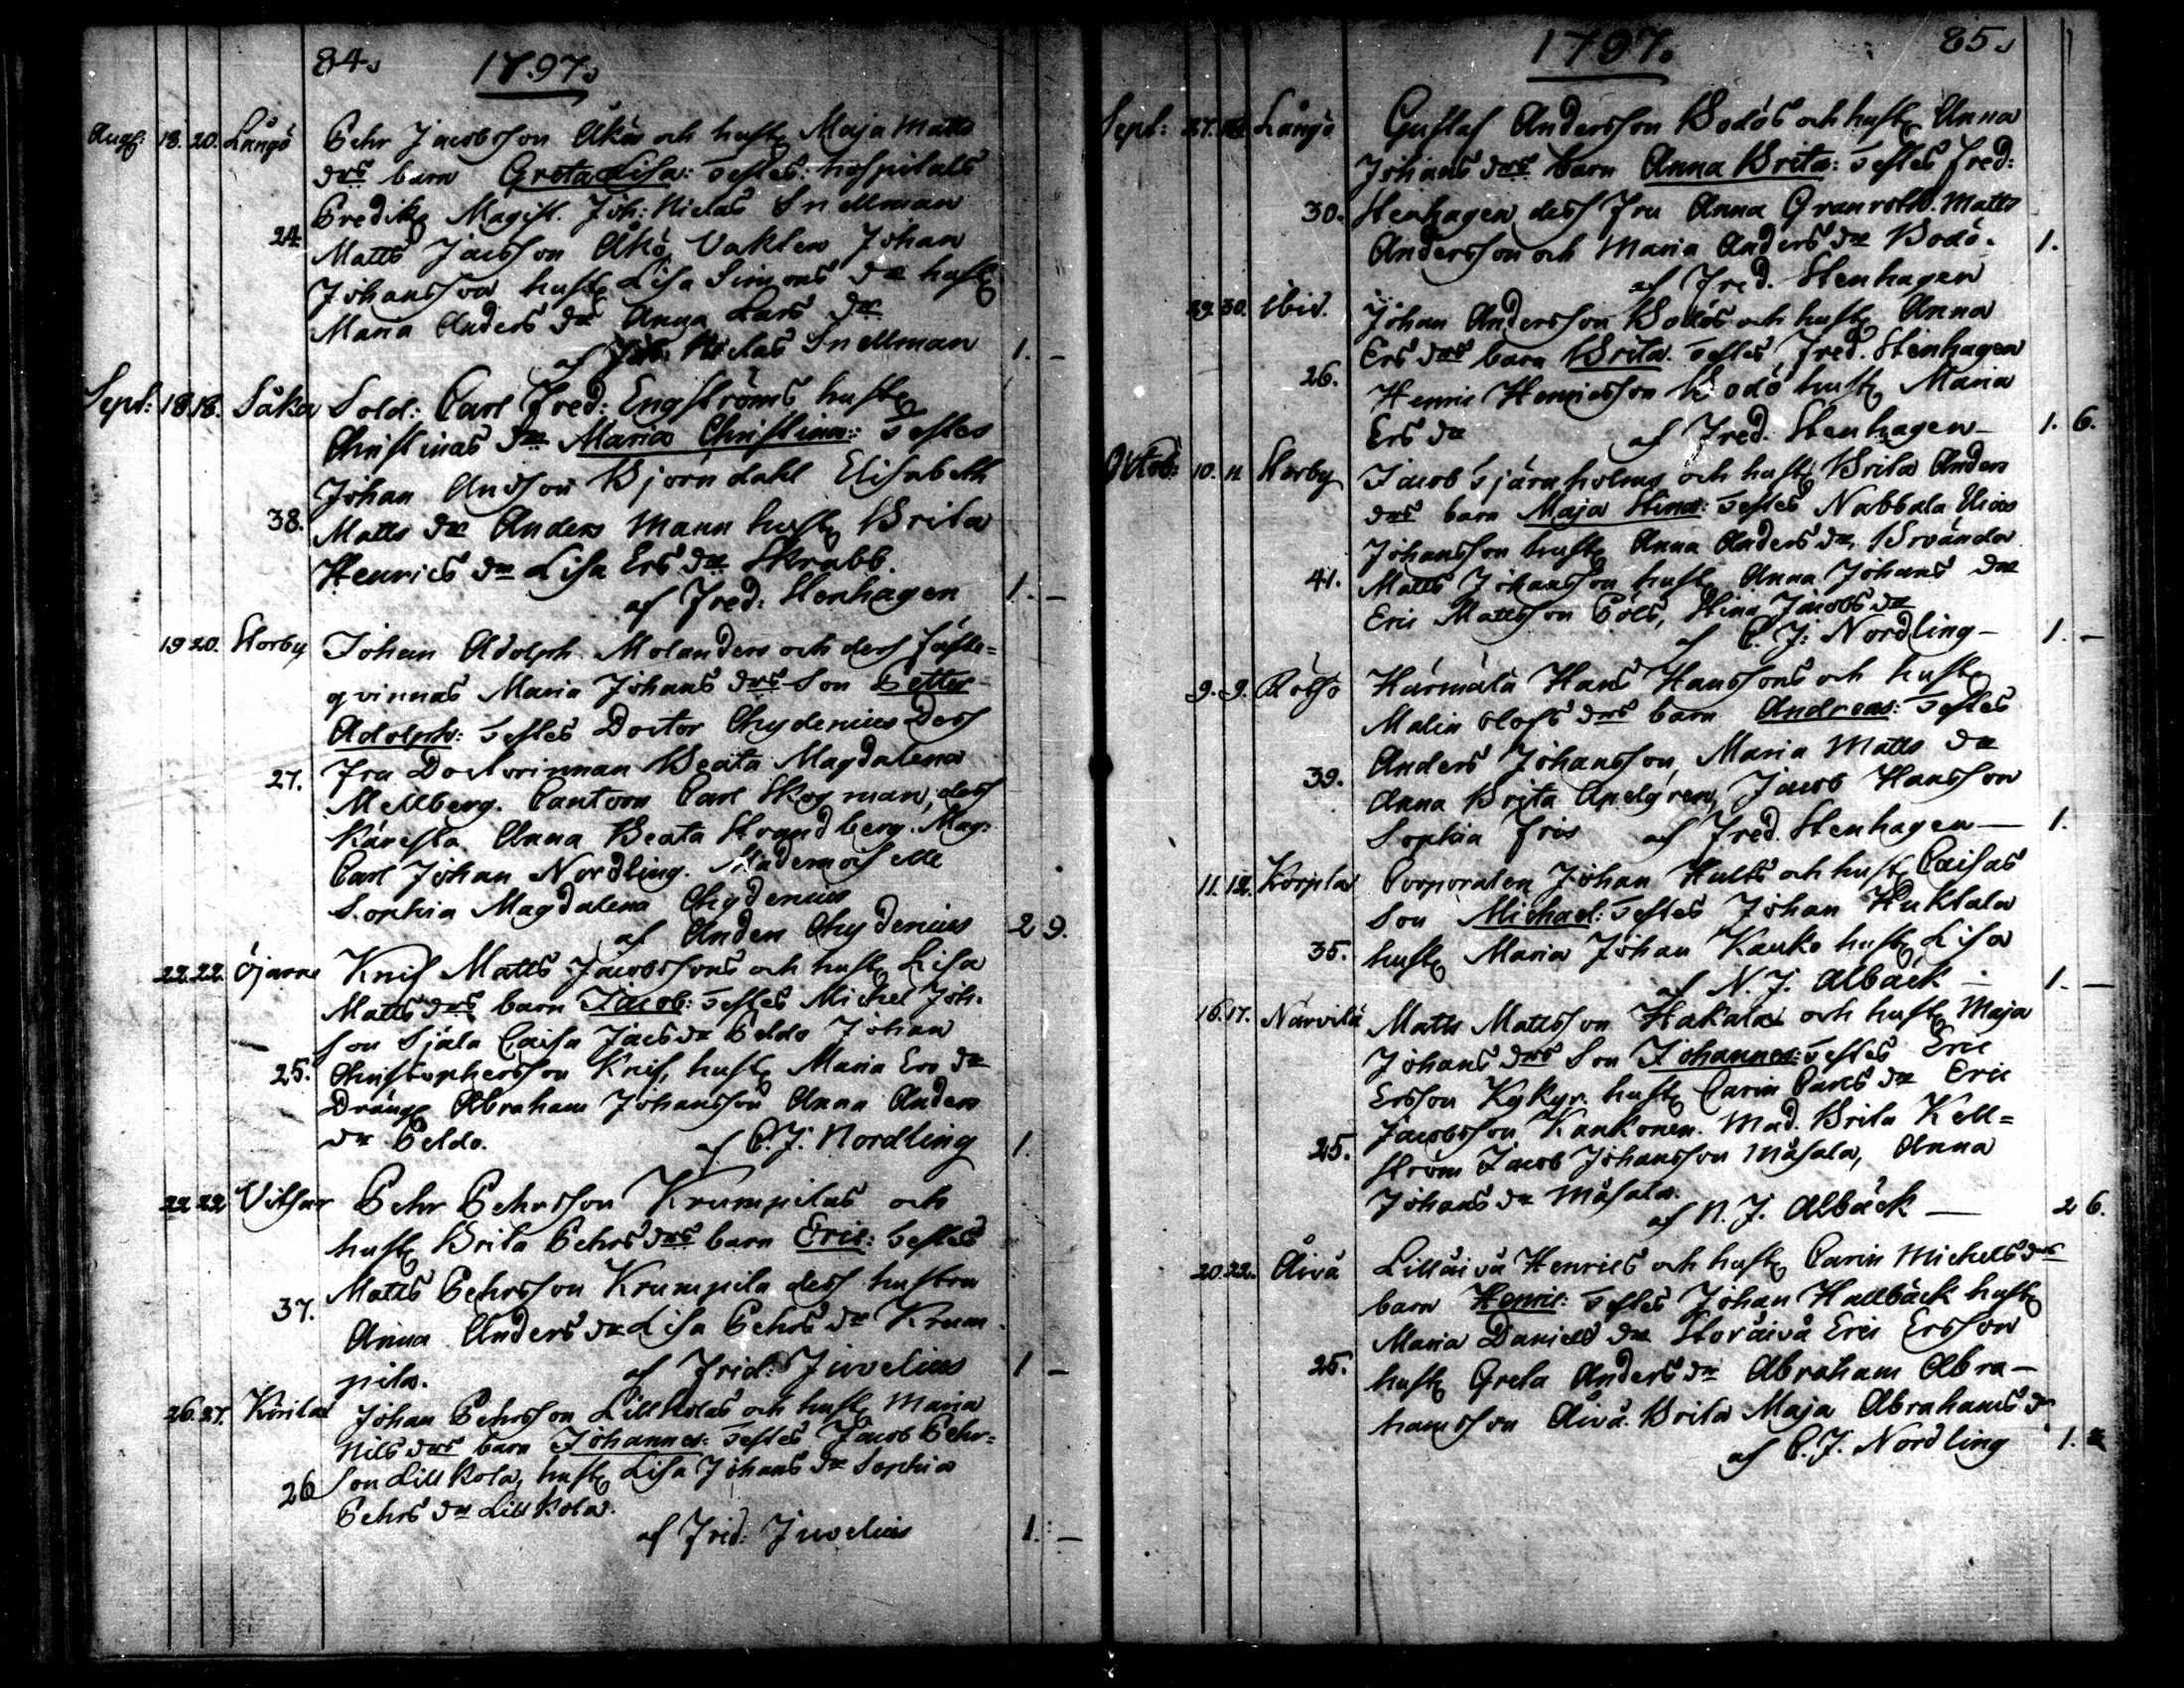 84. 1797.
Aug: 18. 20. Långö Pehr Jacobsson Åkäs och hust. Maja Matts
drs barn Greta Lisa: Testes: hospitals
Predik. Magist. Joh: Niclas Snellman
24. Matts Jacsson Åkö, Vakten Johan
Johansson hust. Lisa Simons dr hust.
Maria Anders dr Anna Lars dr
af Joh: Niclas Snellman 1. –
Sept: 18. 18. Såka Sold: Carl Fred: Engströms hust.
Christinas dr Maria Christina: Testes
Johan Andsson Björndahl Elisabeth
38. Matts dr Anders Mann hust. Brita
Henrics dr Lisa Ers dr Skrabb.
af Fred: Stenhagen 1. –
19 20. Storby Johan Adolph Molanders och dess fäste=
qvinnas Maria Johans drs Son Petter
Adolph: Testes Doctor Chydenius Dess
27. Fru Doctorinnan Beata Magdalena
Mellberg. Cantorn Carl Skogman, dess
Käresta Anna Beata Strandberg. Mag:
Carl Johan Nordling. Mademoiselle
Sophia Magdalena Chydenius
af Anders Chydenius 2 9.
22. 22. Öjarne Knif Matts Jacobssons och hust. Lisa
Matts drs barn Jacob: Testes Michel Joh.
son Själa Caisa Jacs dr Peldo Johan
25. Christophersson Knif, hust. Maria Ers dr
Dräng Abraham Johansson Anna Anders
dr Peldo. af C. J. Nordling 1.
22 22 Vitsar Pehr Pehrsson Krumpilas och
hust. Brita Pehrs drs barn Eric: Testes
37. Matts Pehrsson Krumpila dess hustru
Anna Anders dr Lisa Pehrs dr Krum
pila. af Frid: Juvelius 1 –
26. 27. Körila Johan Pehrsson Lillkolas och hust. Maria
Nils drs barn Johannes: Testes Jacob Pehr=
26 son Lillkola, hust. Lisa Johans dr Sophia
Pehrs dr Lillkola.
af Frid: Juvelius 1. –
1797. 85.
Sept: 27. Långö Gustaf Andersson Bodös och hust. Anna
Johans drs barn Anna Brita: Testes Fred:
30. Stenhagen dess Fru Anna Granroth. Matts
Andersson och Maria Anders dr Bodö. 1.
af Fred. Stenhagen
29. 30. ibid. Johan Andersson Bodös och hust. Anna
Ers drs barn Brita. Testes Fred. Stenhagen
26. Henric Henricsson Bodö hust. Maria
Ers dr af Fred. Stenhagen – 1. 6.
Octob: 10. 11 Storby Jacob Tjärnholms och hust. Brita Anders
drs barn Maja Stina: Testes Nabbala Elias
Johansson hust. Anna Anders dr, Brända
41. Matts Johansson hust. Anna Johans dr
Eric Mattsson Påls, Stina Jacobs dr
af C. J. Nordling – 1. –
9. 9. Rötsö Härmälä Hans Hanssons och hust.
Malin Olofs drs barn Andreas: Testes
39. Anders Johansson, Maria Matts dr
Anna Brita Apelgren, Jacob Hansson
Sophia Friis af Fred. Stenhagen – 1.
11. 12. Korpla Corporalen Johan Hults och hust. Caisas
Son Michael: Testes Johan Huktala
35. hust. Maria Johan Kauko hust. Lisa
af N. J. Albäck – 1. –
16. 17. Närvilä Matts Mattsson Hakala och hust. Maja
Johans drs Son Johannes: Testes Eric
Ersson Kykyr. hust. Carin Carls dr Eric
Jacobsson Kankonen. Mad. Brita Kell=
25. ström Jacob Johansson Måsala, Anna
Johans dr Måsala.
af N. J. Albäck – 2 6.
20. 22. Åivå Lillåivå Henrics och hust. Carin Michels drs
barn Henric: Testes Johan Hallbäck hust.
Maria Daniels dr Storåivå Eric Ersson
25. hust. Greta Anders dr Abraham Abra–
hamsson Åivå. Brita Maja Abrahams dr
af C. J. Nordling 1.